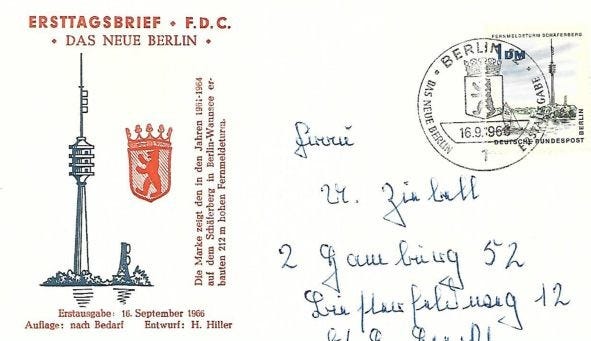 ERSTTAGSBRIEF • F.D.C.
• DAS NEUE BERLIN •
Die Marke zeigt den in den Jahren 1961-1964
auf dem Schäferberg in Berlin-Wannsee er-
bauten 212 m hohen Fernmeldeturm.
Erstausgabe: 16. September 1966
Auflage: nach Bedarf Entwurf: H. Hiller
FERNMELDETURM SCHÄFERBERG
1 DM
DEUTSCHE BUNDESPOST
BERLIN
BERLIN
DAS NEUE BERLIN
ERSTAUSGABE
16.9.1966
1
Herrn
2 Hamburg 52
12